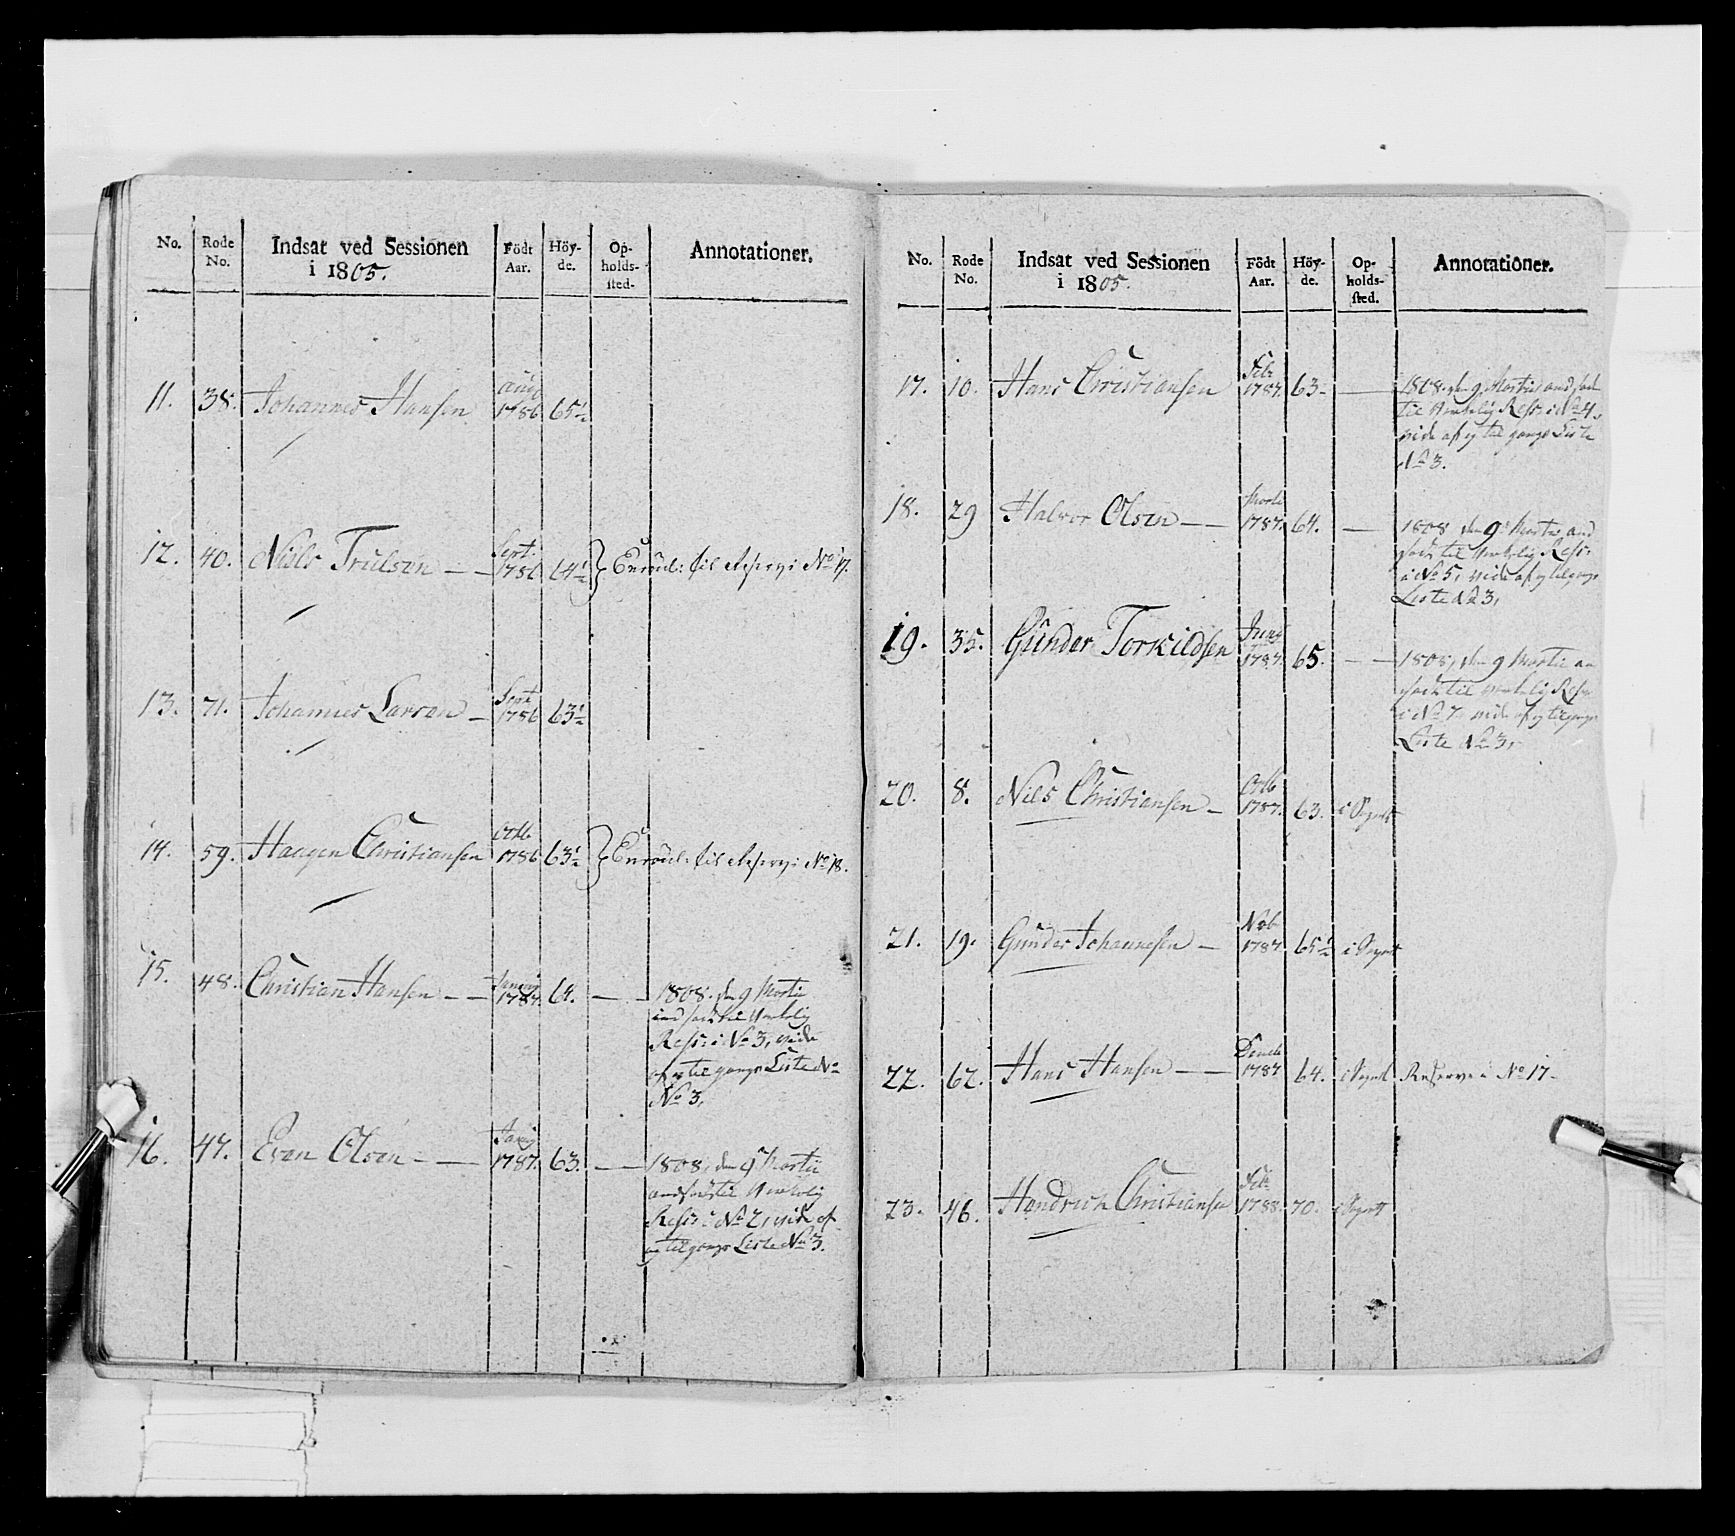 No. Rode No. Indsat ved Sessionen i 1805. Födt Aar. Höy-de. Op-holds-sted. Annotationer.
11. 38. Johannes Hansen Aug 1786 65½
12. 40. Niels Trulsen — Sept. 1786 64½ Enroul: til Reserv: No 17.
13. 71. Johannes Larsen — Sept 1786 63½
14. 59. Haagen Christiansen Octb 1786 63½ Enroul: til Reserv: No 18.
15. 48. Christian Hansen — Januarj 1787. 64. — 1808. den 9 Martii
indsadt til Virkelig
Ress: i No 3, vide
af og tilgangs Liste No
No 3.
16. 47. Even Olsen — Janrj 1787. 63. — 1808, den 9 Martii
indsadt til Virkelig
Ress: i No 2, vide af
og tilgangs Liste No 3.
No. Rode No. Indsat ved Sessionen i 1805. Födt Aar. Höy-de. Op-holds-sted. Annotationer.
17. 10. Hans Christiansen Febr 1787. 63 — 1808. den 9 Martii indsadt
til Virkelig Ress: i No 4,
vide af og til gangs Liste
No 3.
18. 29 Halvor Olsen — Marti 1787. 64. — 1808 den 9 Martii ind
sadt til Virkelig Ress:
i No 5, vide af og tilgangs
Liste No 3,
19. 35. Gunder Torkildsen Junj 1787. 65. — 1808, den 9 Martii in
sadt til Virkelig Ress:
i No 7, vide af og tilgangs
Liste No 3,
20. 8. Niels Christiansen — Octb 1787. 63. i Sognet
21. 19. Gunder Johannesen — Novb 1787. 65½ i Sognet
22. 62. Hans Hansen — Decemb 1787 64. i Sognet Reserve i No 17
23. 46. Hendrich Christiansen Feb 1788. 70. i Sognet